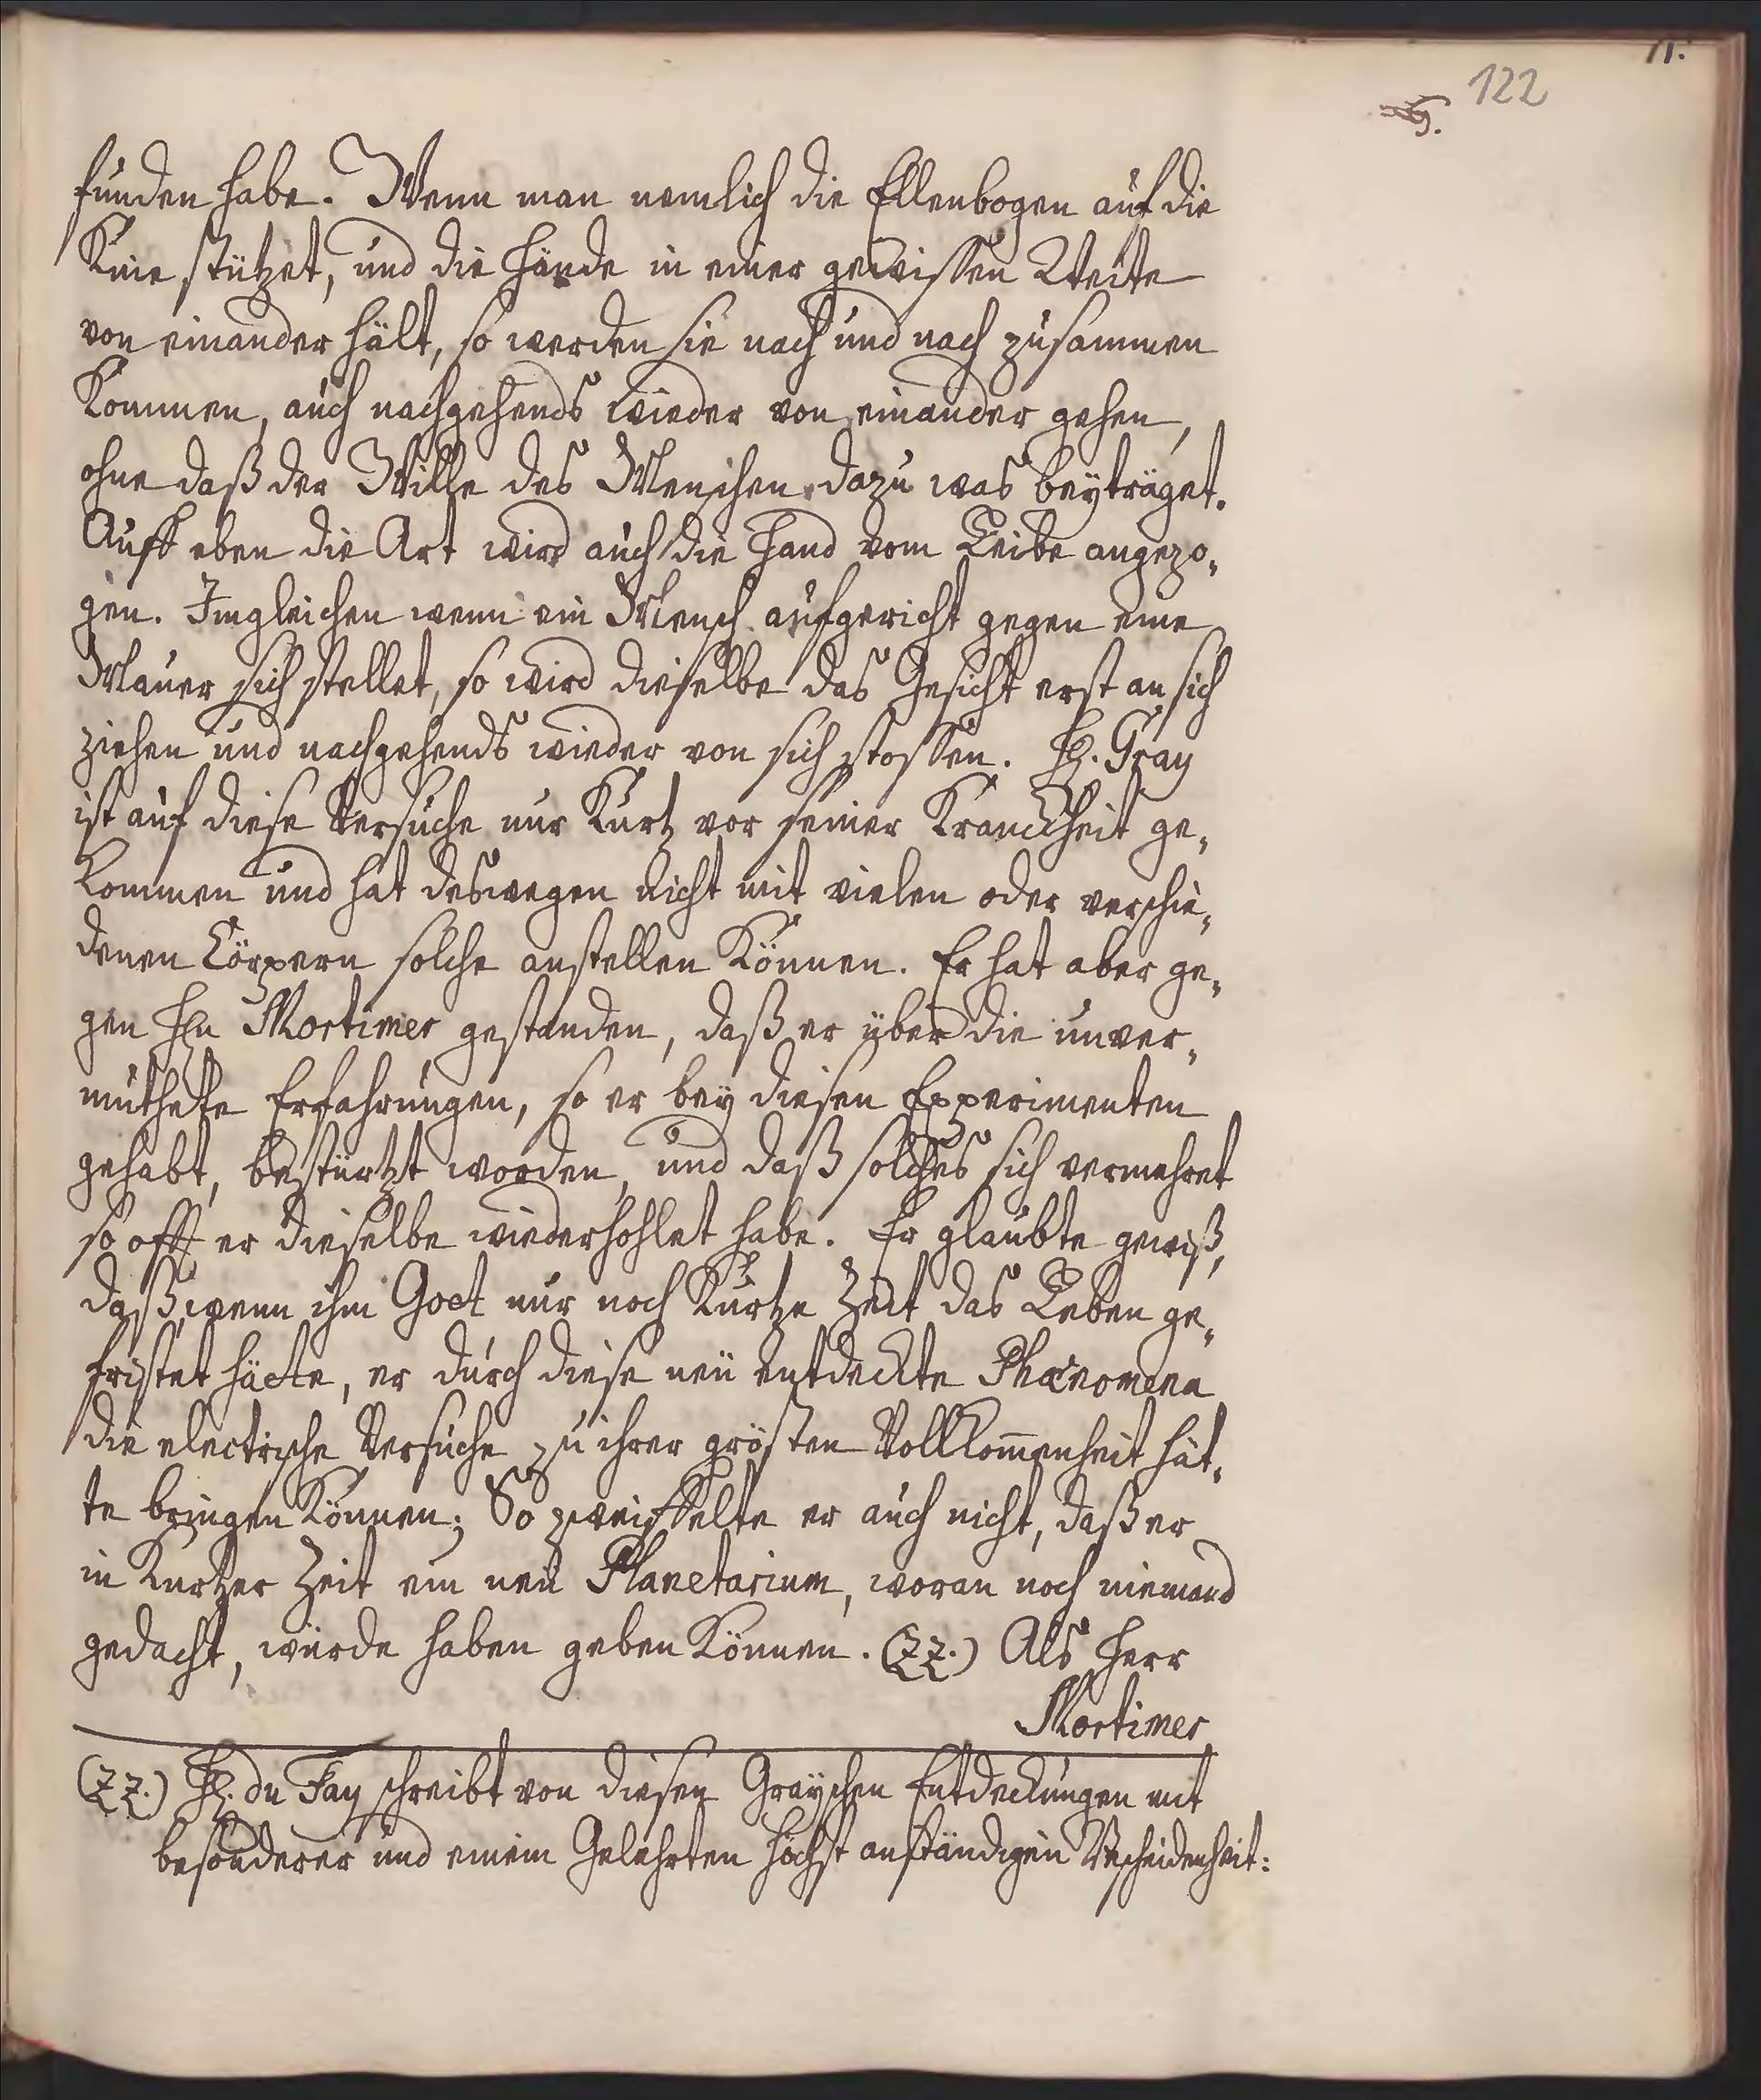 122
71.
funden habe. Wenn man nemlich die Ellenbogen auf die
Knie stützet, und die Hände in einer gewissen Weite
von einander hält, so werden sie nach und nach zusammen
kommen, auch nachgehends wieder von einander gehen,
ohne daß der Wille des Menschen dazu was beyträget.
Auff eben die Art wird auch die Hand vom Leibe angezo„
gen. Imgleichen wenn ein Mensch aufgericht gegen eine
Mauer sich stellet, so wird dieselbe das Gesicht erst an sich
ziehen und nachgehends wieder von sich stossen. H. Gray
ist auf diese Versuche nur kurtz vor seiner Kranckheit ge„
kommen und hat deswegen nicht mit vielen oder verschie„
denen Cörpern solche anstellen können. Er hat aber ge„
gen Hn Mortimer gestanden, daß er über die unver„
muthete Erfahrungen, so er bey diesen Experimenten
gehabt, bestürtzt worden, und daß solches sich vermehret
so offt er dieselbe wiederhohlet habe. Er glaubte gewiß,
daß, wenn ihm Gott nur noch kurtze Zeit das Leben ge„
fristet hätte, er durch diese neü entdeckte Phænomena
die electrische Versuche zu ihrer grösten Vollkom̄enheit hät„
te bringen können; So zweiffelte er auch nicht, daß er
in kurtzer Zeit ein neü Planetarium, woran noch niemand
gedacht, würde haben geben können. (zz.) Als Herr
Mortimer
(zz.) H. du Fay schreibt von diesen Grayschen Entdeckungen mit
besonderer und einem Gelehrten höchst anständigen Bescheidenheit: